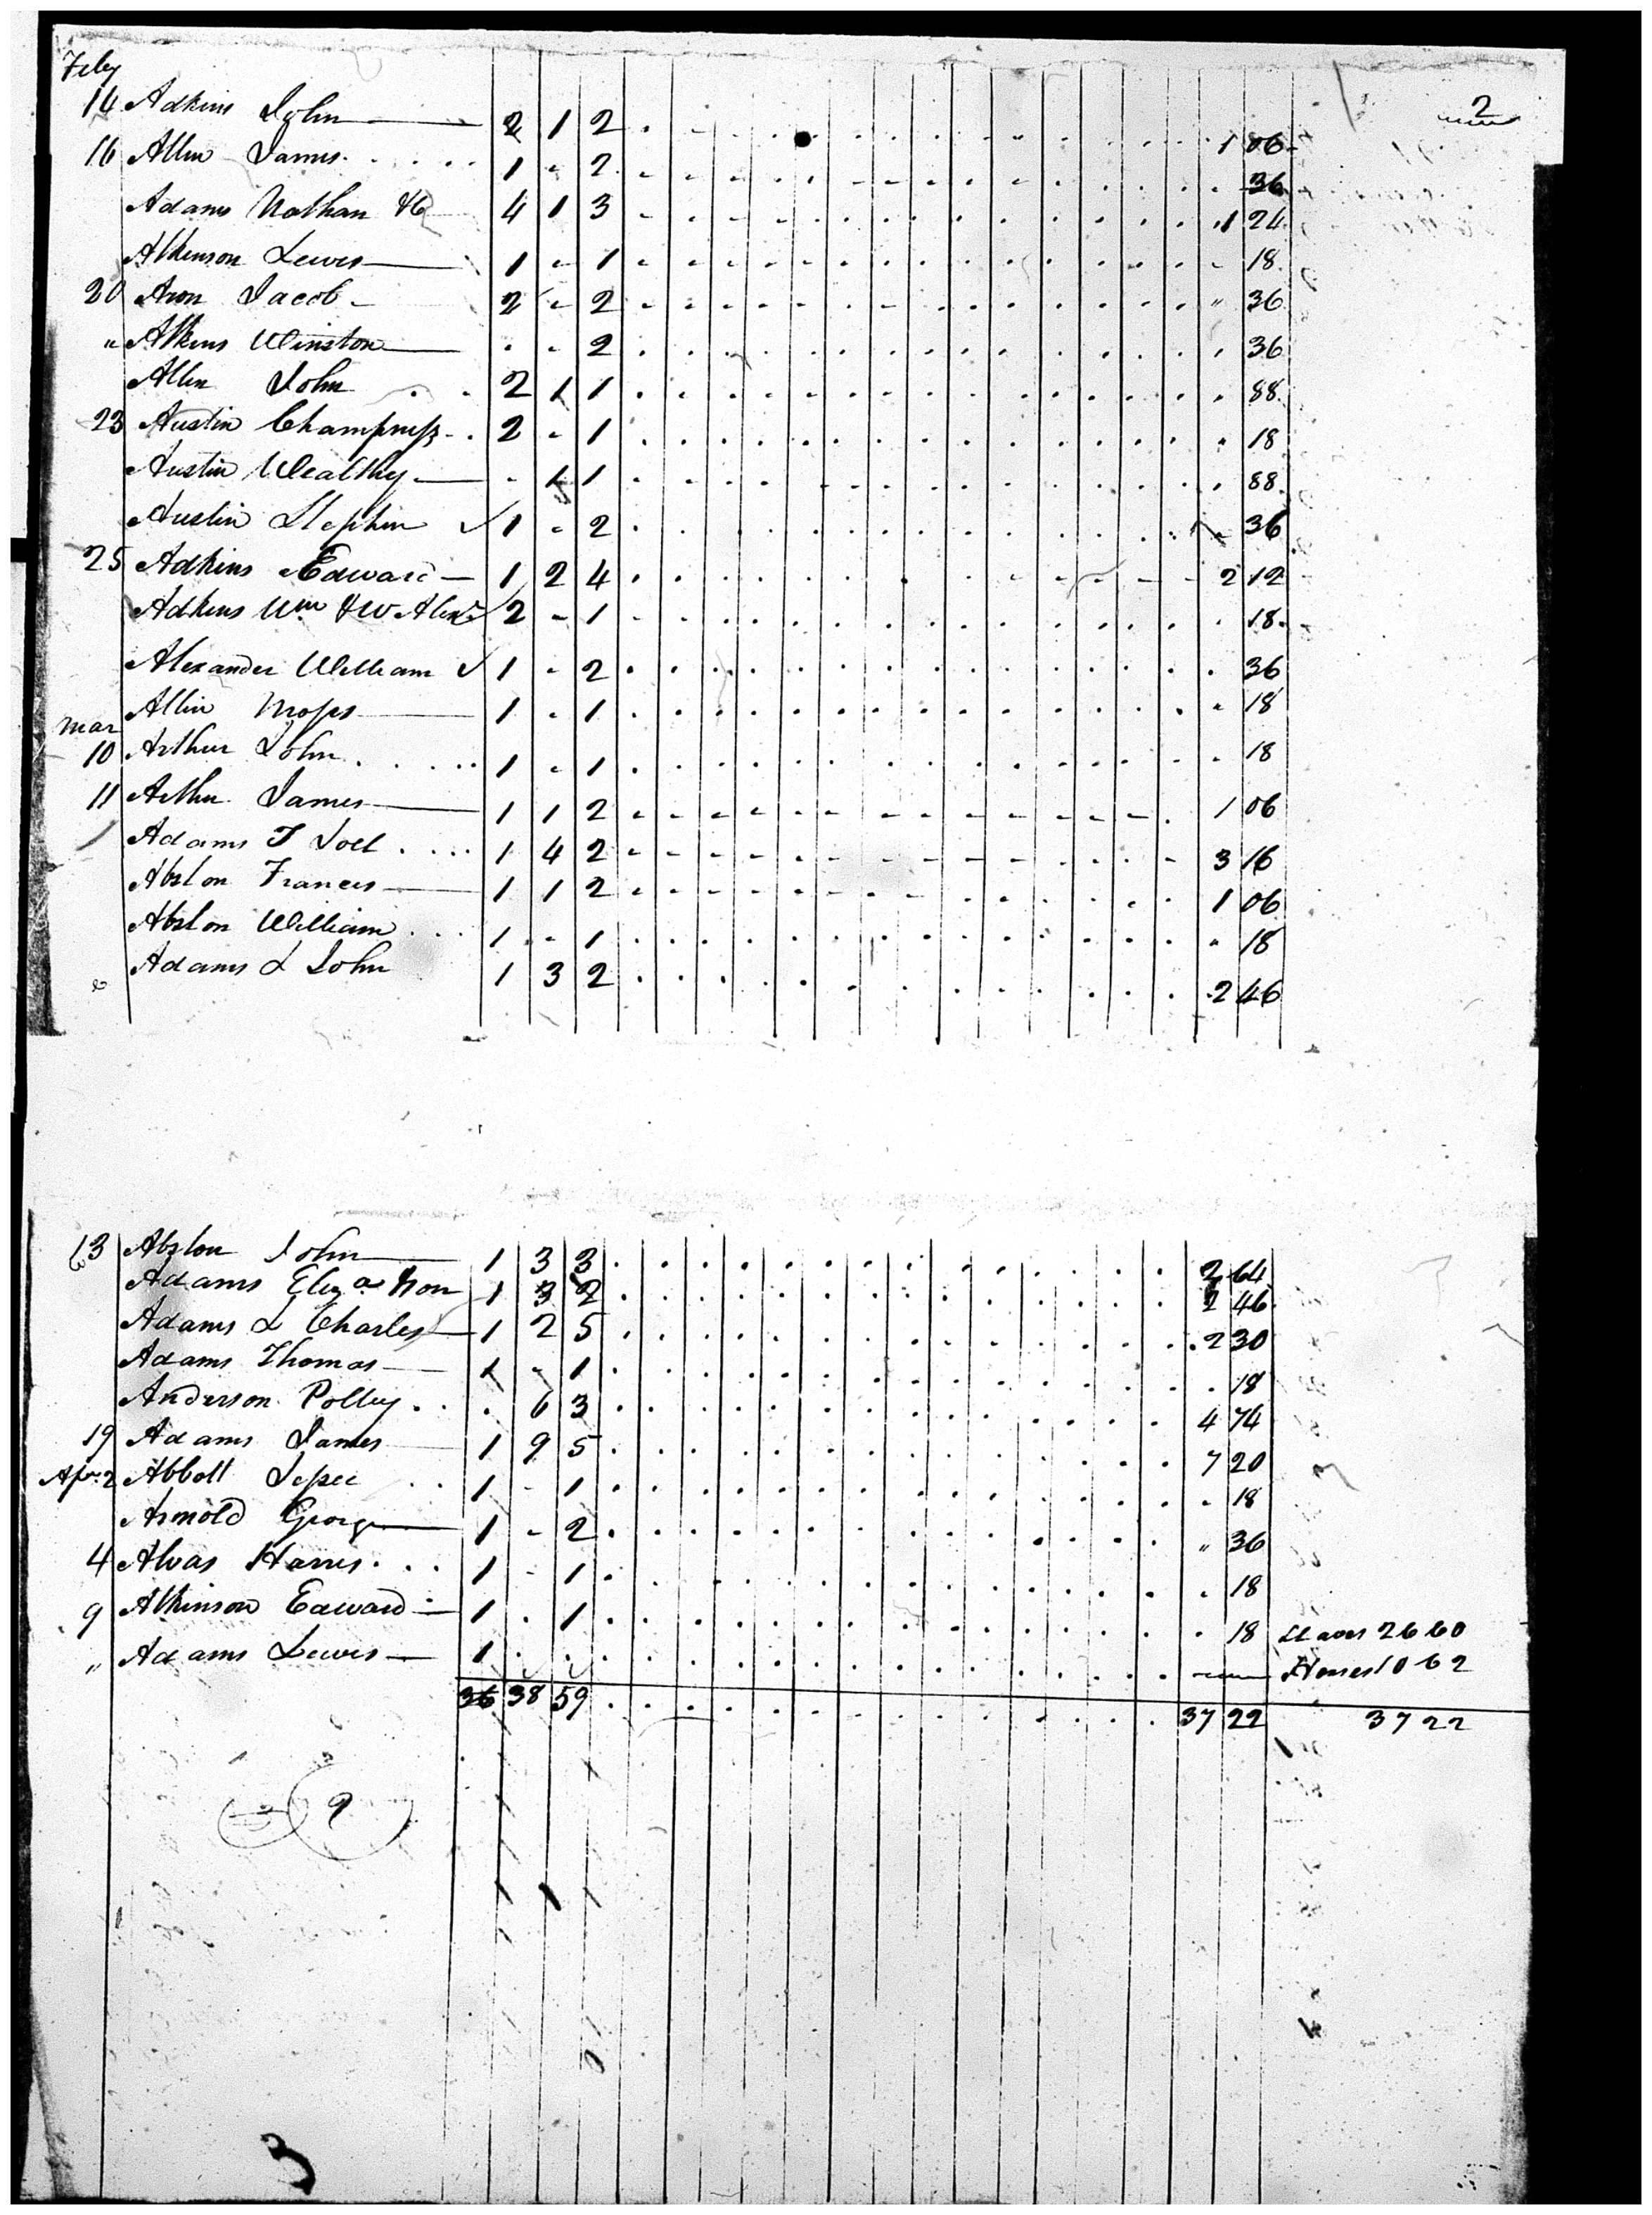 Feby
2
14 Adkins John 2 1 2 1 06
16 Allen James 1 - 2 36
Adams Nathan 4 1 3 1 24
Atkinson Lewis 1 - 1 18
20 Aron Jacob 2 - 2 " 36
" Atkins Winston . - 2 36
Allen John 2 1 1 88
23 Austin Champness 2 - 1 18
Austin Wealthy - 1 1 88
Austin Stephen ✓ 1 - 2 36
25 Adkins Edward 1 2 4 2 12
Adkins Wm & W Alexr ✓ 2 - 1 18
Alexander William ✓ 1 - 2 36
Allin Moses 1 - 1 18
Mar
10 Arthur John 1 - 1 18
11 Arthur James 1 1 2 1 06
Adams T Joel 1 4 2 3 16
Abston Francis 1 1 2 1 06
Abston William 1 - 1 18
Adams L John 1 3 2 2 46
13 Abston John 1 3 3 2 64
Adams Eliza 1 3 2 2 46
Adams L Charles 1 2 5 2 30
Adams Thomas 1 - 1 18
Anderson Polley . 6 3 4 74
19 Adams James 1 9 5 7 20
Apr. 2 Abbott Jesse 1 - 1 18
Arnold George 1 - 2 " 36
4 Alvas Harris 1 - 1 18
9 Atkinson Edward 1 . 1 18 Slaves 26 60
" Adams Lewis 1 Horses 10 62
36 38 59 37 22 37 22
9
3